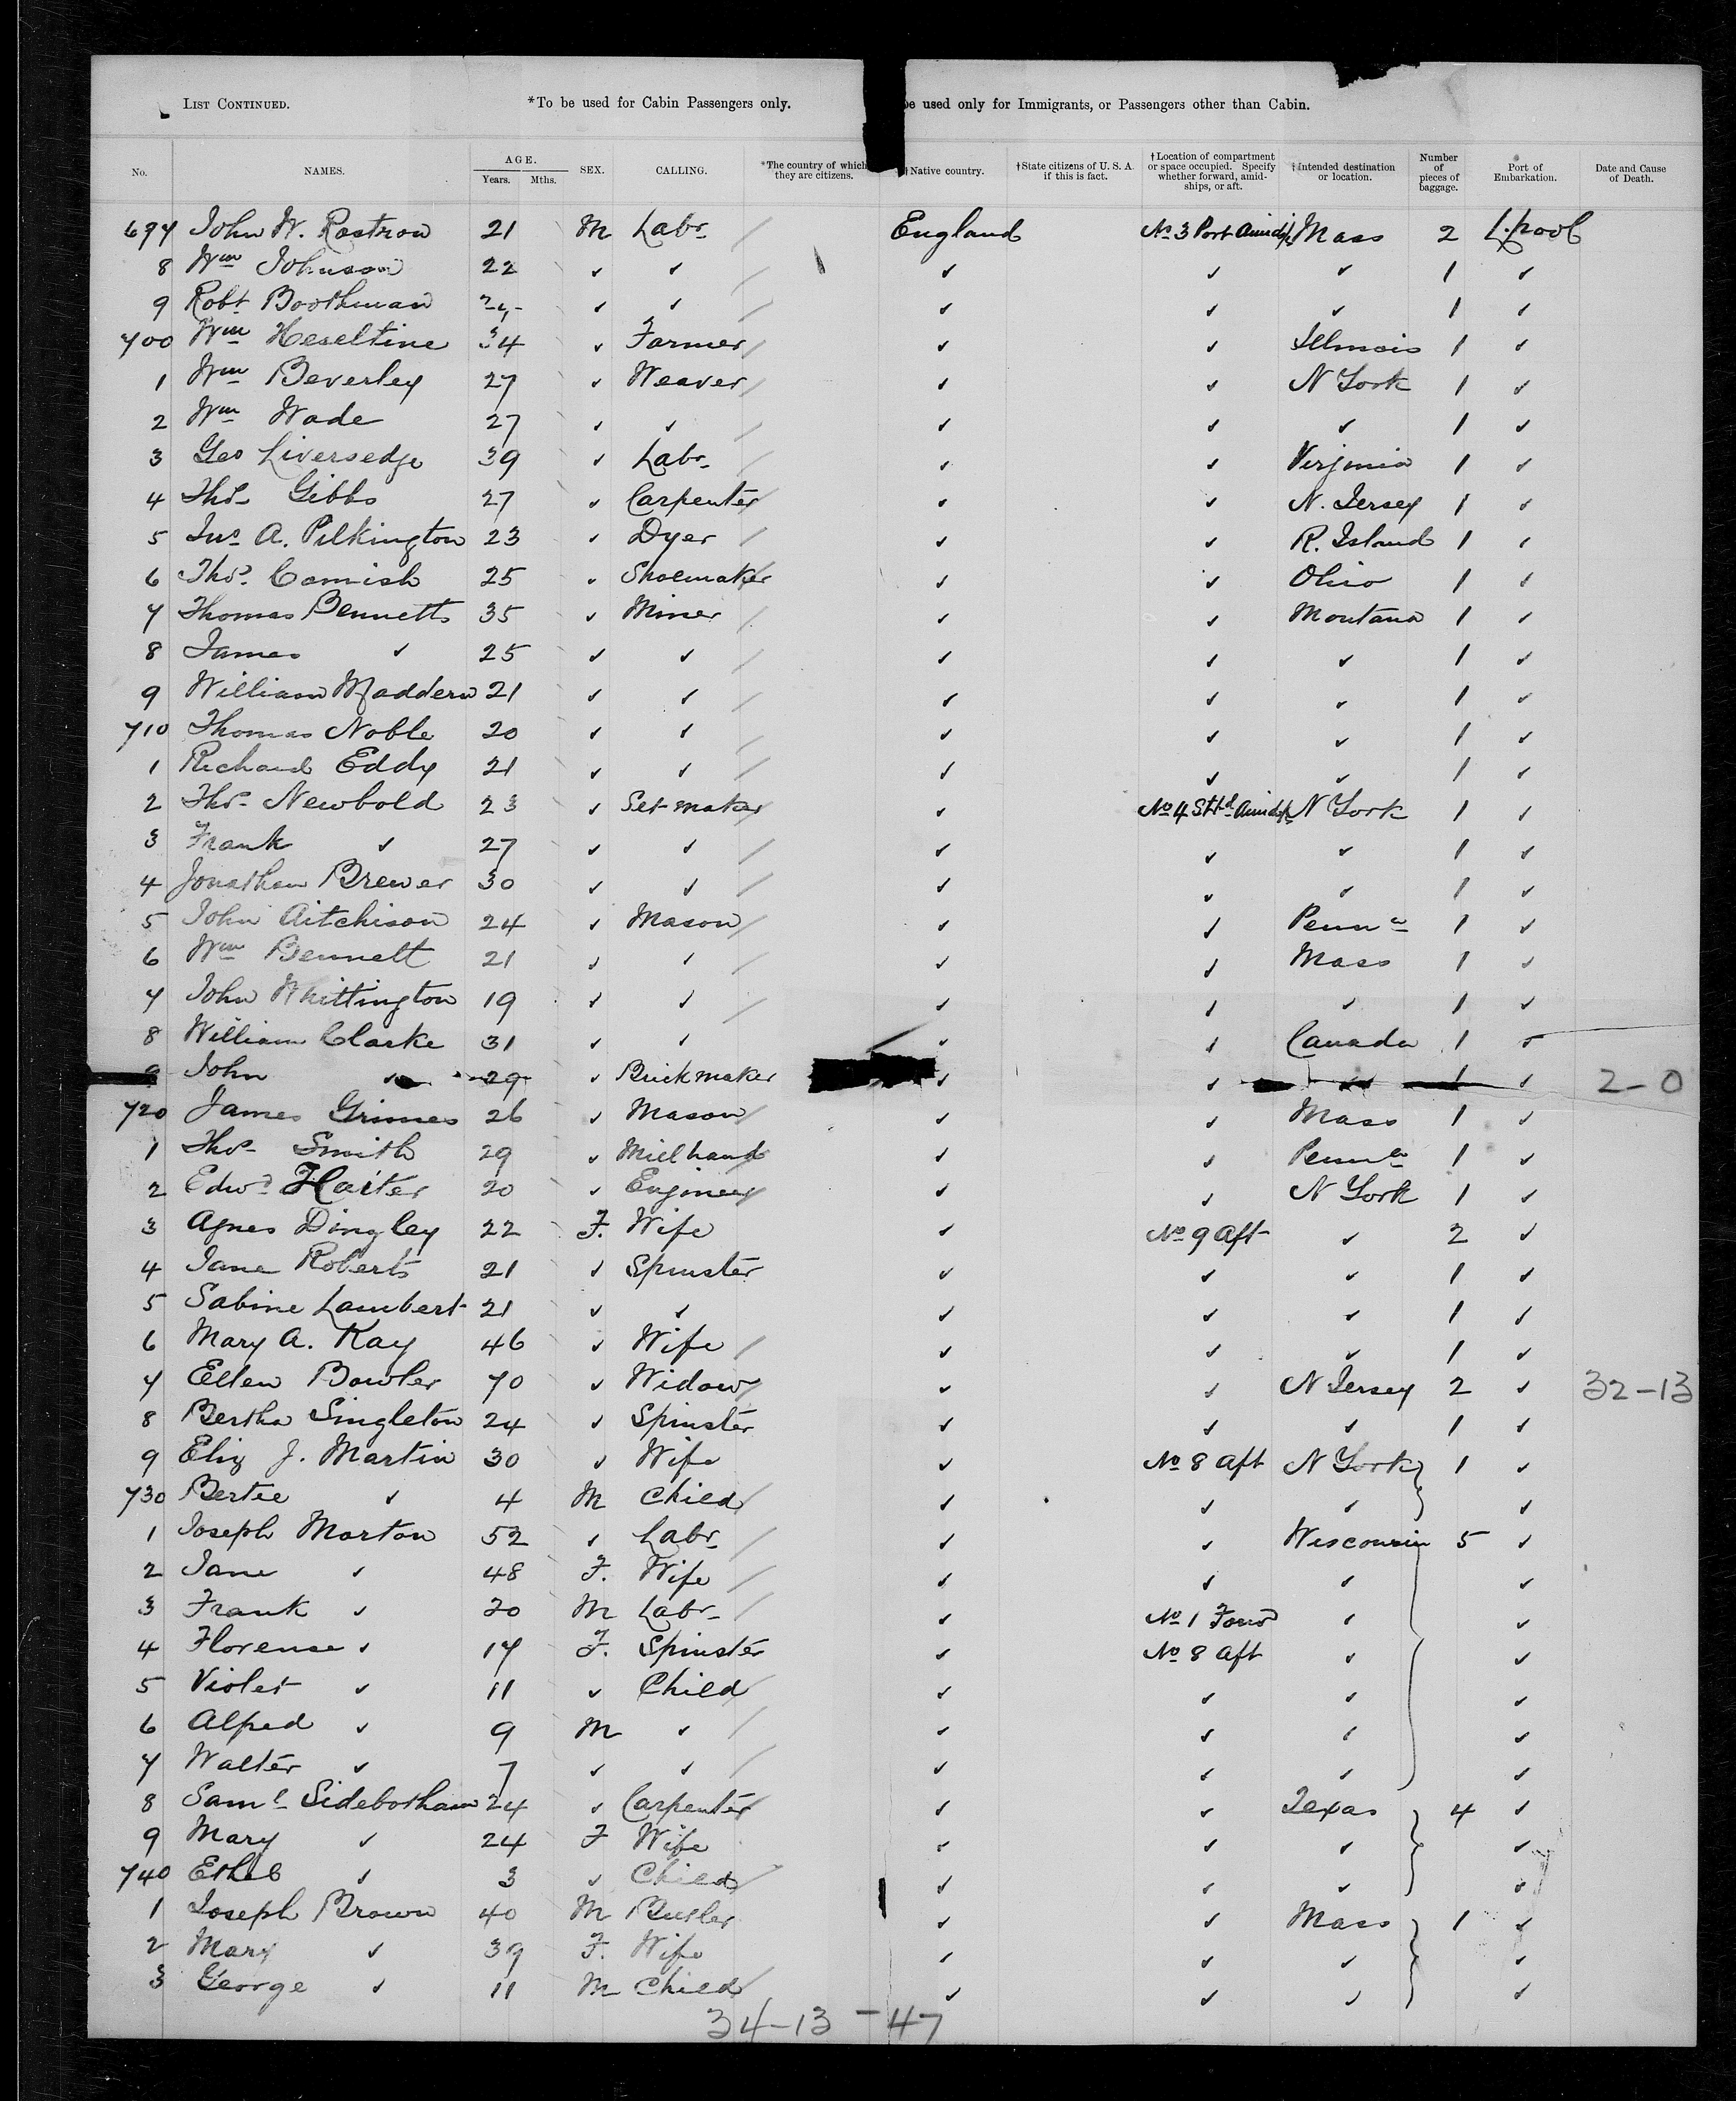 LIST CONTINUED. *To be used for Cabin Passengers only. be used only for Immigrants, or Passengers other than Cabin.
No. NAMES. AGE. Years. Mths. SEX. CALLING. *The country of which they are citizens. †Native country. †State citizens of U. S. A. if this is fact. †Location of compartment or space occupied. Specify whether forward, amidships, or aft. †Intended destination or location. Number of pieces of baggage. Port of Embarkation. Date and Cause of Death.
697 John W. Rostron 21 M Labr England No 3 Port Amids. Mass 2 L.pool
8 Wm Johnson 22 ✓ ✓ ✓ ✓ ✓ 1 ✓
9 Robt Boothman ✓ ✓ ✓ ✓ ✓ 1 ✓
700 Wm Heseltine 34 ✓ Farmer ✓ ✓ Illinois 1 ✓
1 Wm Beverley 27 ✓ Weaver ✓ ✓ N York 1 ✓
2 Wm Wade 27 ✓ ✓ ✓ ✓ ✓ 1 ✓
3 Geo Liversedge 39 ✓ Labr ✓ ✓ Virginia 1 ✓
4 Thos Gibbs 27 ✓ Carpenter ✓ ✓ N. Jersey 1 ✓
5 Jno A. Pilkington 23 ✓ Dyer ✓ ✓ R. Island 1 ✓
6 Thos. Cornish 25 ✓ Shoemaker ✓ ✓ Ohio 1 ✓
7 Thomas Bennetts 35 ✓ Miner ✓ ✓ Montana 1 ✓
8 James ✓ 25 ✓ ✓ ✓ ✓ ✓ 1 ✓
9 William Maddern 21 ✓ ✓ ✓ ✓ ✓ 1 ✓
710 Thomas Noble 20 ✓ ✓ ✓ ✓ ✓ 1 ✓
1 Richard Eddy 21 ✓ ✓ ✓ ✓ ✓ 1 ✓
2 Thos Newbold 23 ✓ Set maker ✓ No 4 Stbd Amids N York 1 ✓
3 Frank ✓ 27 ✓ ✓ ✓ ✓ ✓ 1 ✓
4 Jonathan Brewer 30 ✓ ✓ ✓ ✓ ✓ 1 ✓
5 John Aitchison 24 ✓ Mason ✓ ✓ Penna 1 ✓
6 Wm Bennett 21 ✓ ✓ ✓ ✓ Mass 1 ✓
7 John Whittington 19 ✓ ✓ ✓ ✓ ✓ 1 ✓
8 William Clarke 31 ✓ ✓ ✓ ✓ Canada 1 ✓
9 John ✓ 29 ✓ Brickmaker ✓ ✓ ✓ 1 ✓ 2-0
720 James Grimes 26 ✓ Mason ✓ ✓ Mass 1 ✓
1 Thos Smith 29 ✓ Millhand ✓ ✓ Penna 1 ✓
2 Edwd Haiter 20 ✓ Engineer ✓ ✓ N York 1 ✓
3 Agnes Dingley 22 F. Wife ✓ No 9 Aft ✓ 2 ✓
4 Jane Roberts 21 ✓ Spinster ✓ ✓ ✓ 1 ✓
5 Sabine Lambert 21 ✓ ✓ ✓ ✓ ✓ 1 ✓
6 Mary A. Kay 46 ✓ Wife ✓ ✓ ✓ 1 ✓
7 Ellen Bowler 70 ✓ Widow ✓ ✓ N Jersey 2 ✓ 32-13
8 Bertha Singleton 24 ✓ Spinster ✓ ✓ ✓ 1 ✓
9 Eliz J. Martin 30 ✓ Wife ✓ No 8 Aft N York 1 ✓
730 Bertie ✓ 4 M Child ✓ ✓ ✓ ✓
1 Joseph Morton 52 ✓ Labr ✓ ✓ Wisconsin 5 ✓
2 Jane ✓ 48 F. Wife ✓ ✓ ✓ ✓
3 Frank ✓ 20 M Labr ✓ No 1 Forwd ✓ ✓
4 Florense ✓ 17 F. Spinster ✓ No 8 Aft ✓ ✓
5 Violet ✓ 11 ✓ Child ✓ ✓ ✓ ✓
6 Alfred ✓ 9 M ✓ ✓ ✓ ✓ ✓
7 Walter ✓ 7 ✓ ✓ ✓ ✓ ✓ ✓
8 Saml Sidebotham 24 ✓ Carpenter ✓ ✓ Texas 4 ✓
9 Mary ✓ 24 F Wife ✓ ✓ ✓ ✓
740 Ethel ✓ 3 ✓ Child ✓ ✓ ✓ ✓
1 Joseph Brown 40 M Butler ✓ ✓ Mass 1 ✓
2 Mary ✓ 39 F. Wife ✓ ✓ ✓ ✓
3 George ✓ 11 M Child ✓ ✓ ✓ ✓
34-13-47